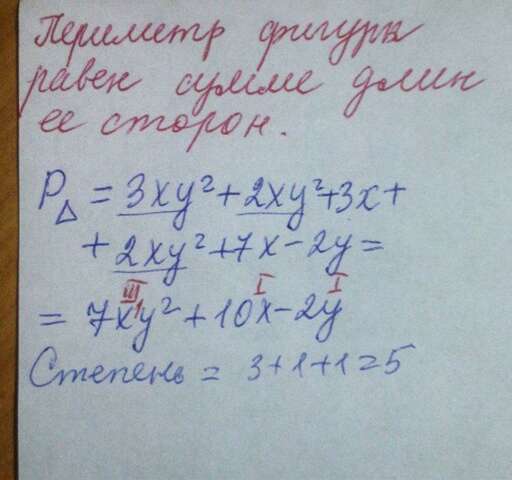 Периметр фигуры
равен сумме длин
ее сторон.
P△ = 3xy² + 2xy² + 3x +
+ 2xy² + 7x - 2y =
III I I
= 7x¹y² + 10x - 2y
Степень = 3+1+1=5